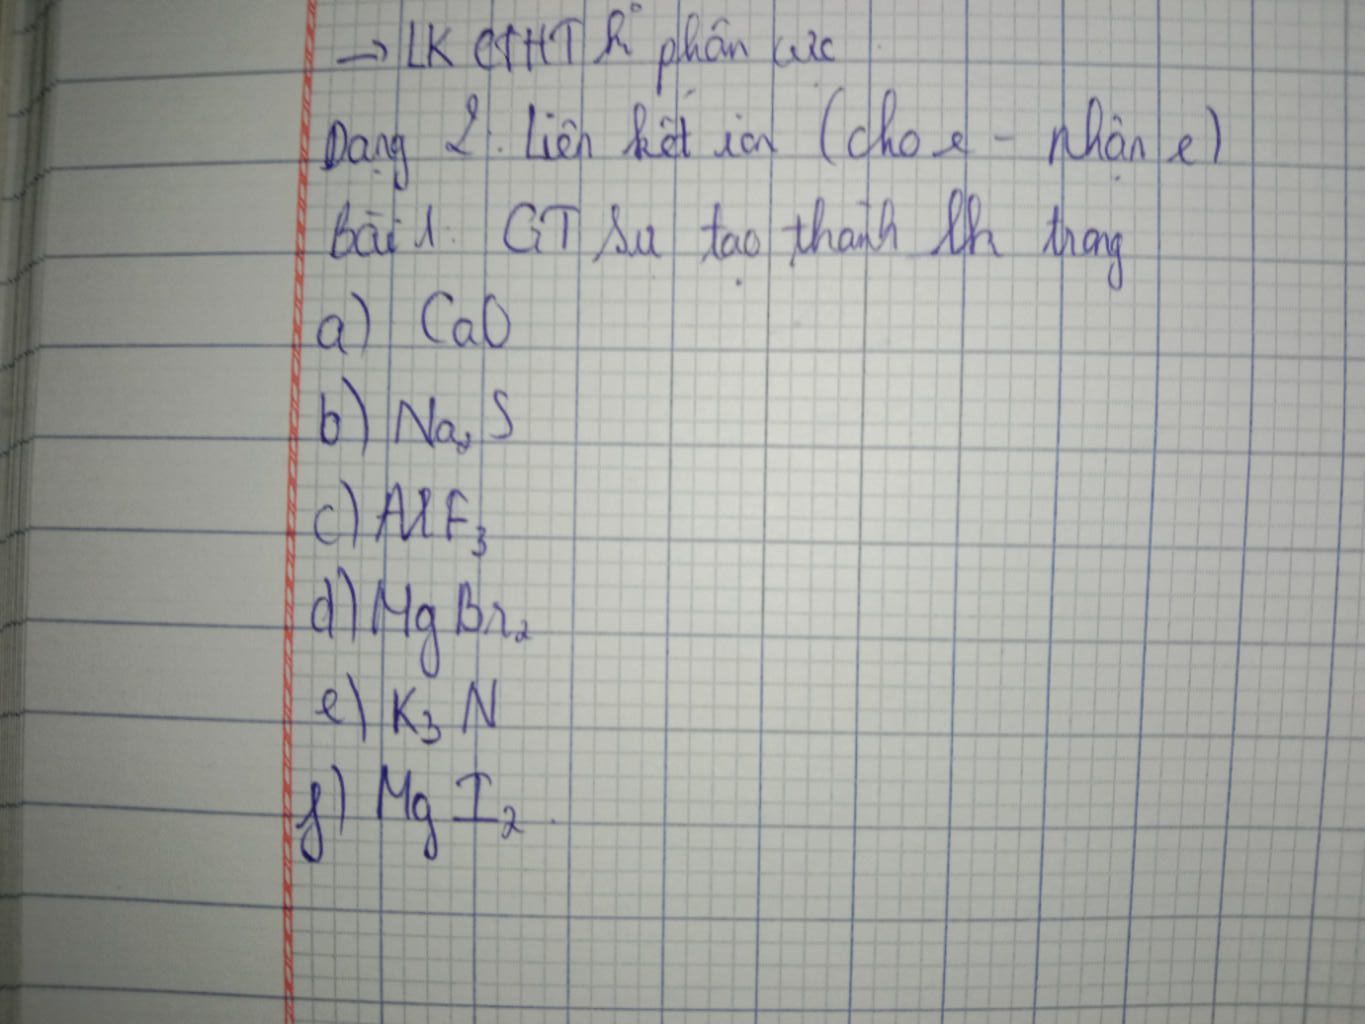 → LK CHT k° phân cực
Dạng 2: Liên kết ion (cho e - nhận e)
Bài 1: GT sự tạo thành lk trong
a) CaO
b) Na₂S
c) AlF₃
d) MgBr₂
e) K₃N
f) MgI₂.